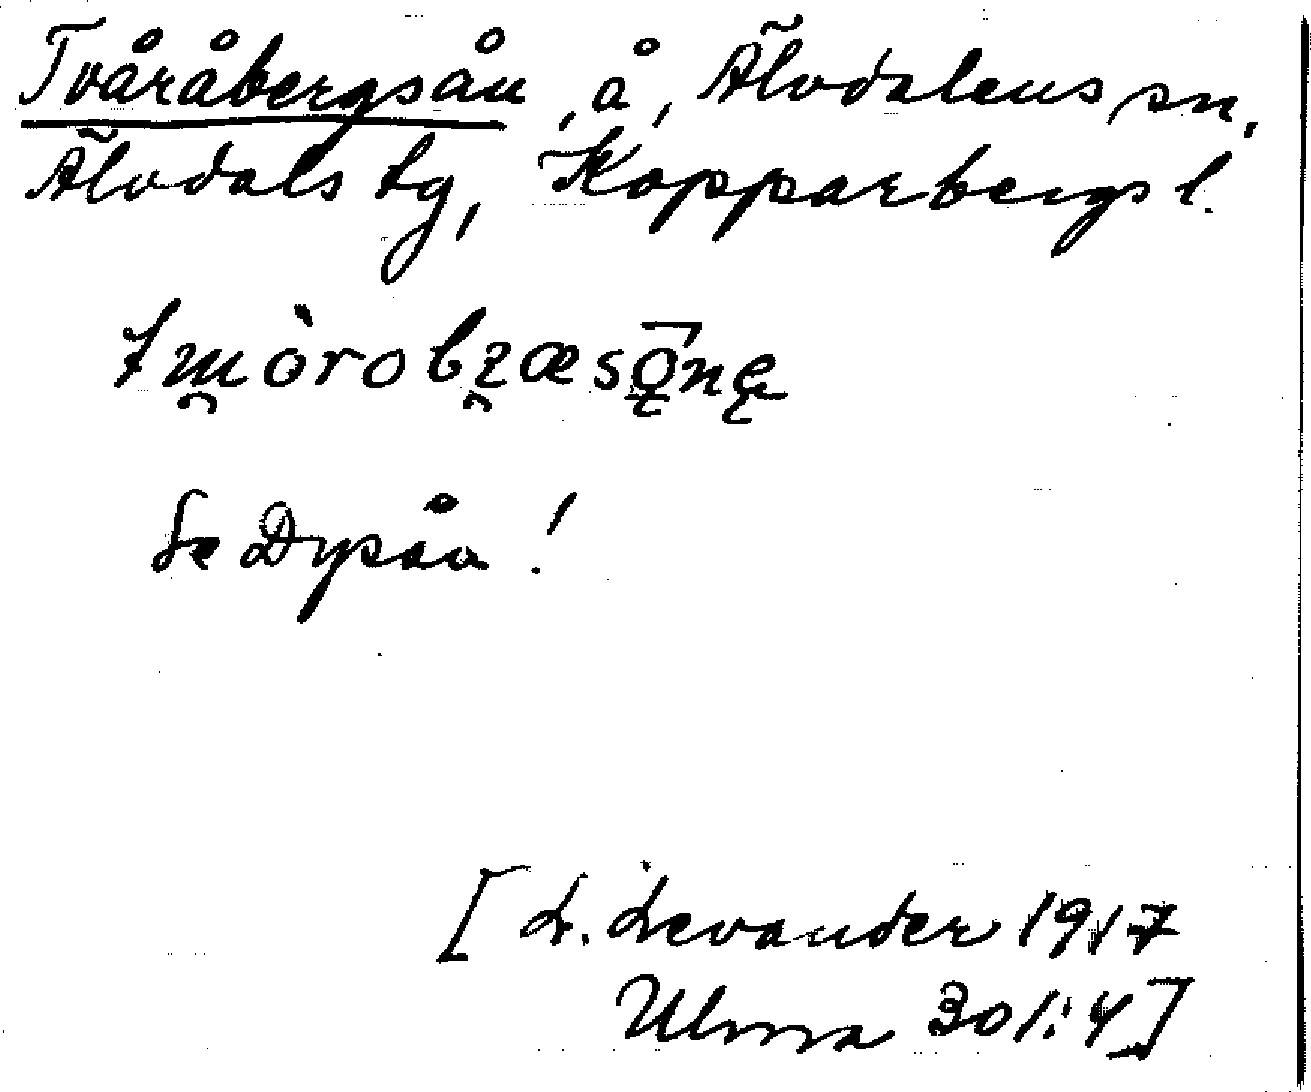 Tvåråbergsån, å, Älvdalens sn,
Älvdals tg, Kopparbergs l.
Se Dyåsa!
[L. Levander 1917
Ulma 301:4]